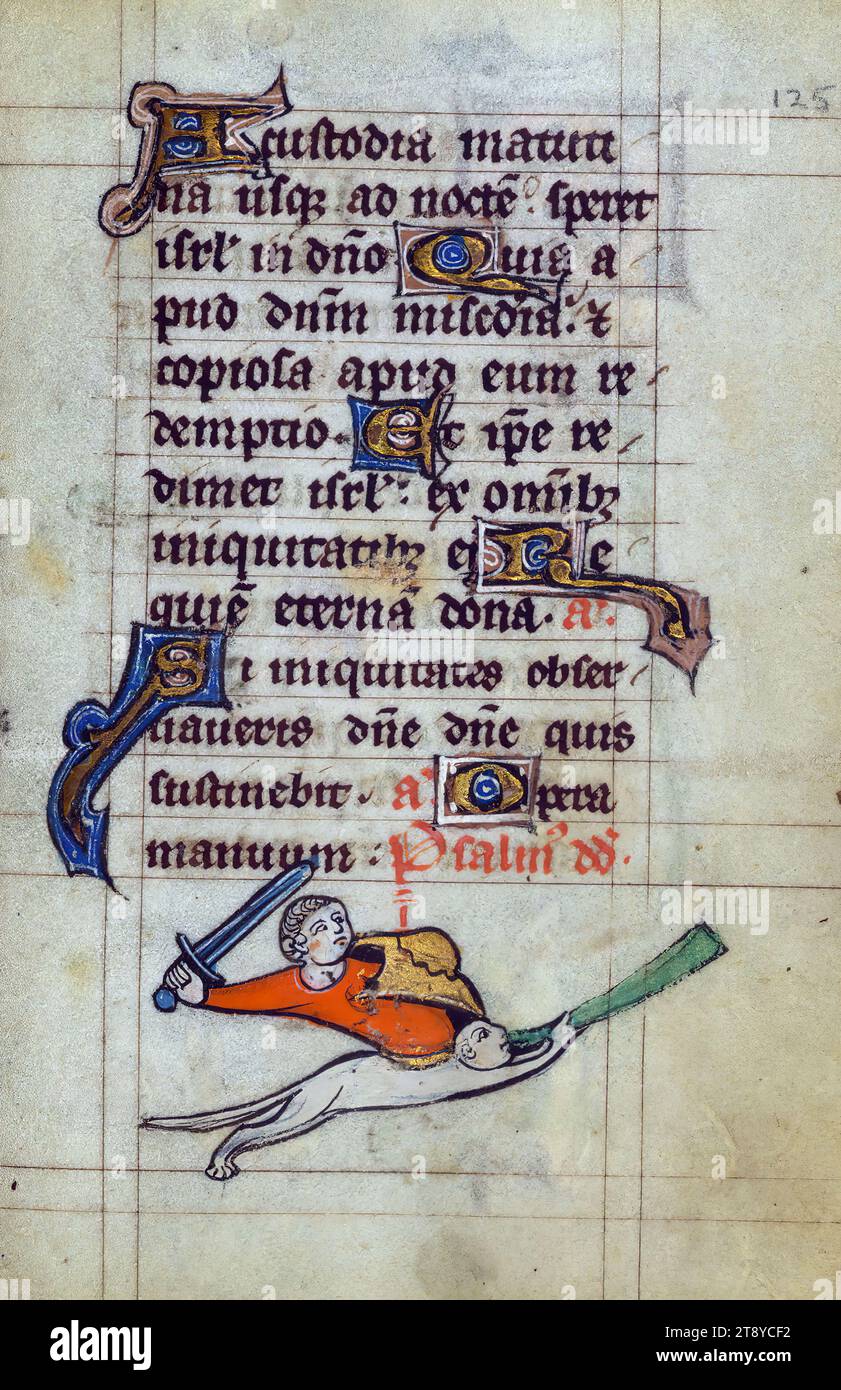 125
A custodia matuti
na usq₃ ad noctē. speret
isrł in dño Quia a
pud dn̄m misc̄dia. ⁊
copiosa apud eum re
demptio. Et ip̄e re
dimet isrł: ex om̄ib₃
iniquitatib₃ eiꝰ Re
quiē eternā dona. a͛.
Si iniquitates obser
vaveris dn̄e dn̄e quis
sustinebit. a͛. Opera
manuum. Psalmꝰ dd̄.
alamy
Image ID: 2T8YCF2
www.alamy.com